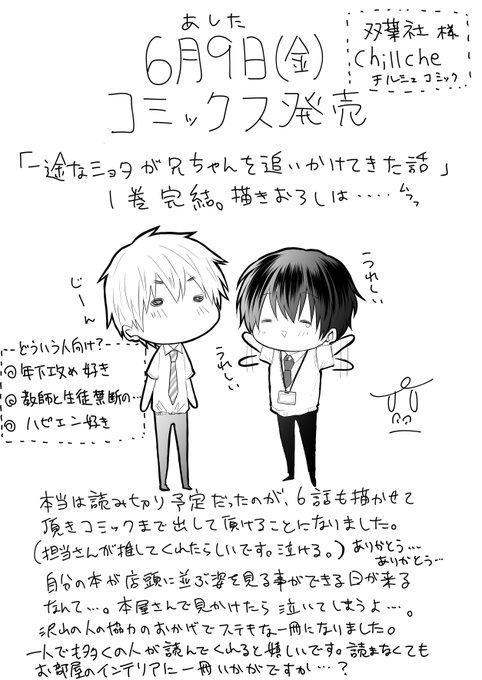 あした
6月9日(金)
コミックス発売
双葉社 様
Chillche
チルシェコミック
「一途なショタが兄ちゃんを追いかけてきた話」
1巻完結。描きおろしは‥‥
じーん
うれしい
うれしい
どういう人向け?
◎年下攻め好き
◎教師と生徒禁断の…
◎ハピエン好き
本当は読み切り予定だったのが、6話も描かせて
頂きコミックまで出して頂けることになりました。
(担当さんが推してくれたらしいです。泣ける。)
ありがとう…
ありがとう…
自分の本が店頭に並ぶ姿を見る事ができる日が来る
なんて…。本屋さんで見かけたら泣いてしまうよ…。
沢山の人の協力のおかげでステキな一冊になりました。
一人でも多くの人が読んでくれると嬉しいです。読まなくても
お部屋のインテリアに一冊いかがですか…?